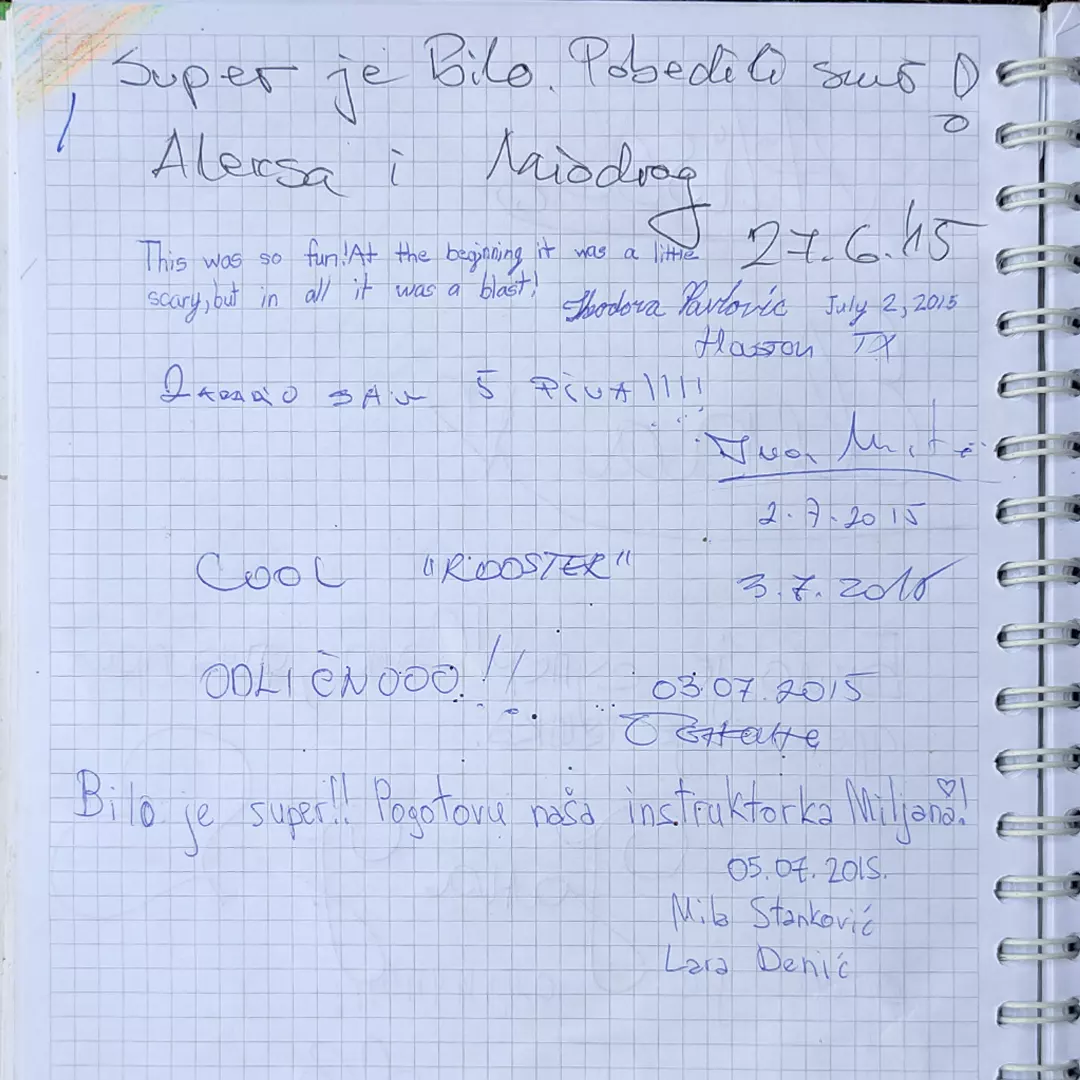 Super je Bilo. Pobedili smo
Aleksa i Miodrag
27.6.15
This was so fun! At the beginning it was a little
scary, but in all it was a blast!
Theodora Pavlovic July 2, 2015
TX
5 PIVA!!!!
2.7.2015
COOL "ROOSTER" 3.7.2015
ODLIČNOOO!! 03.07.2015
Bilo je super!! Pogotovu naša instruktorka Miljana!
05.07.2015.
Mila Stanković
Lara Denić